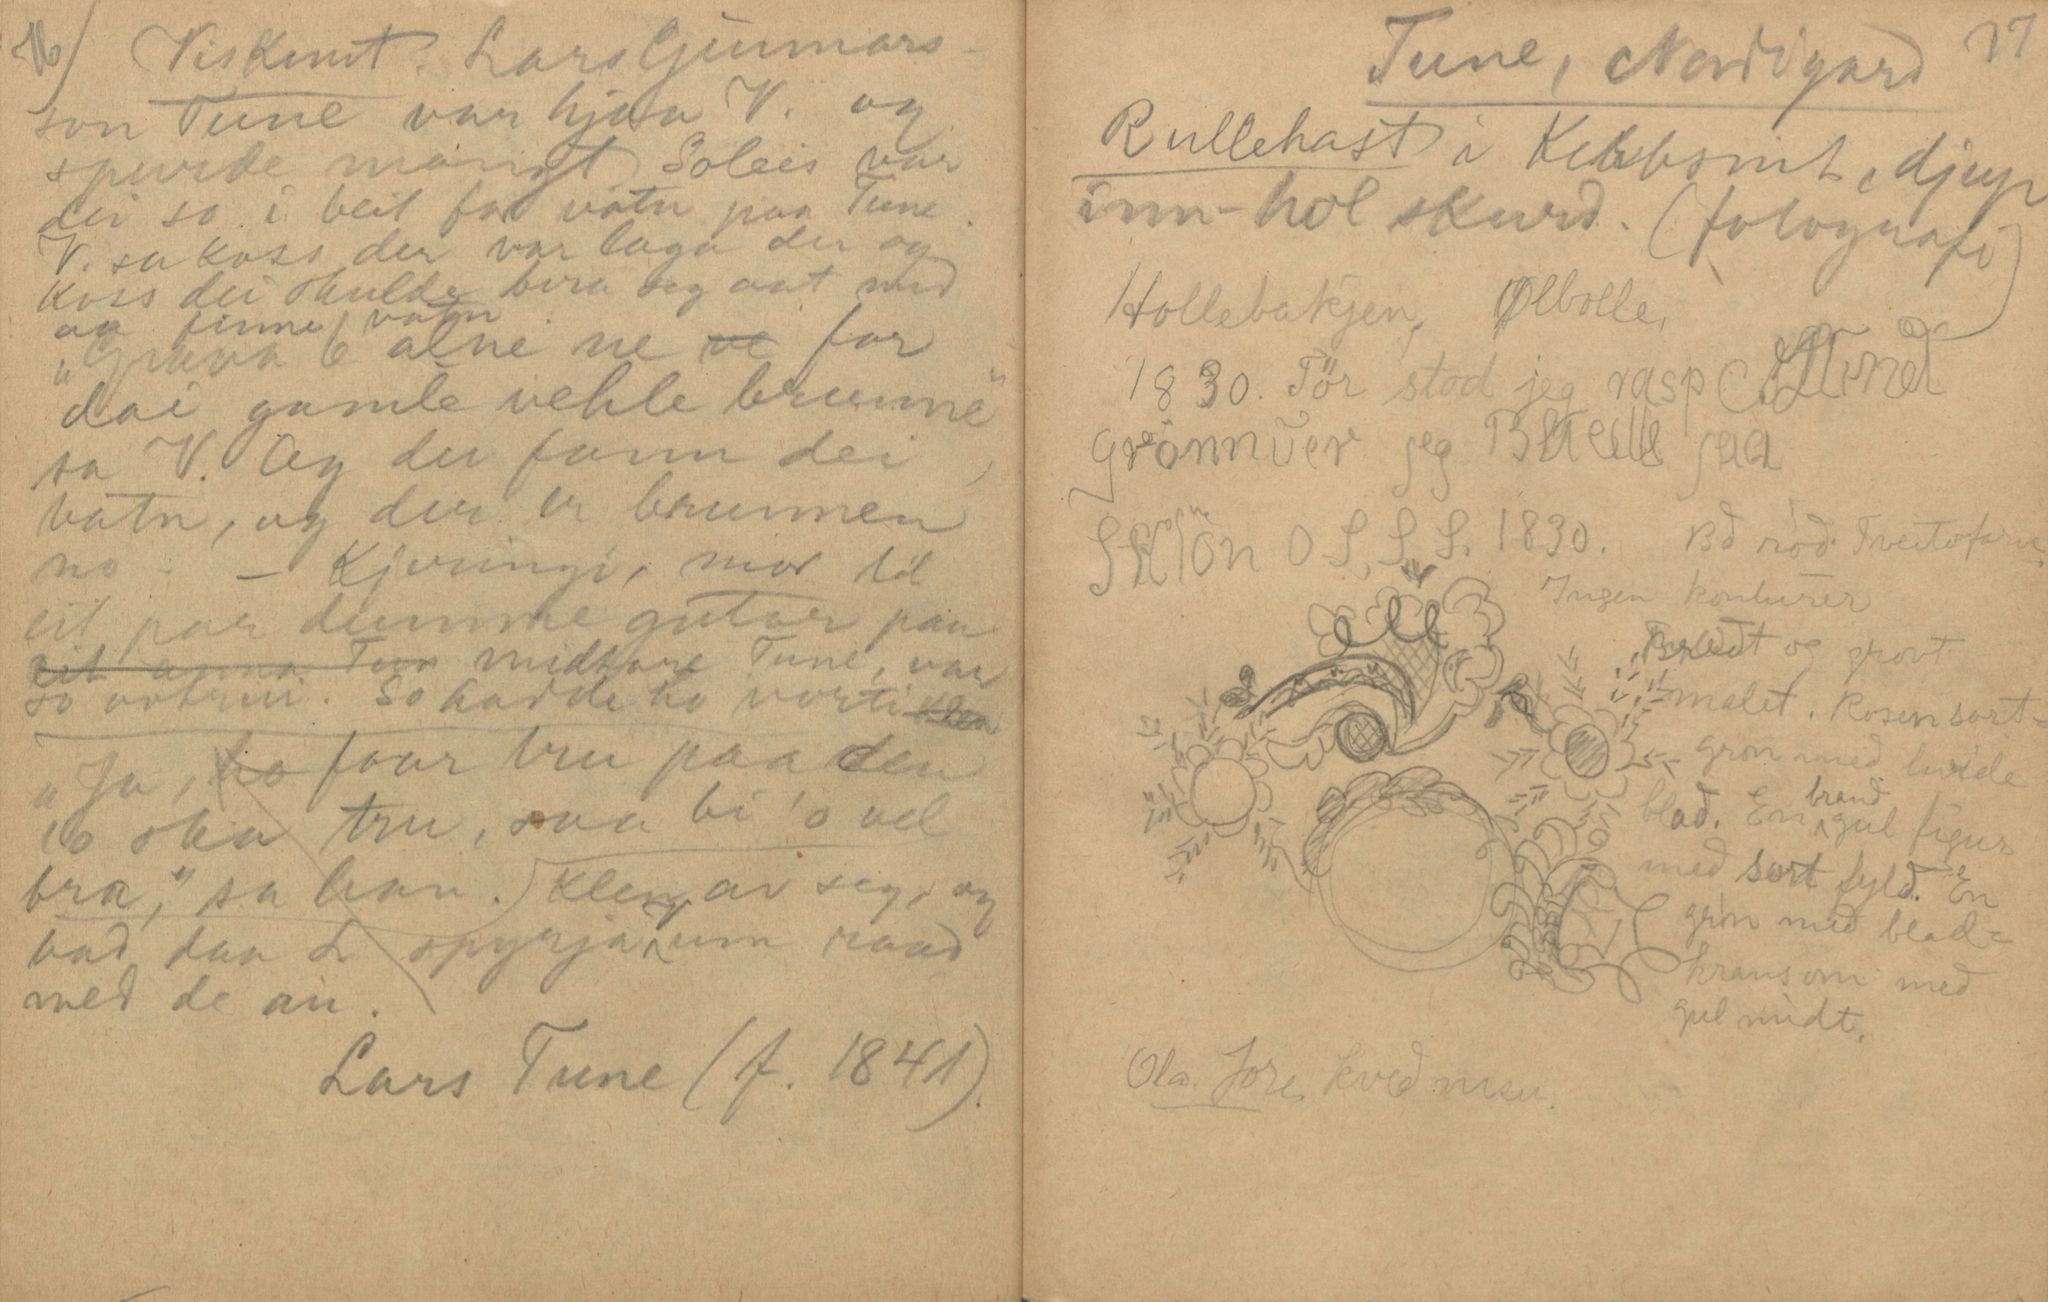 16/ Viskunt. Lars Gunnars-
son Tune var hjaa V. og
spurde mangt. Soleis var
dei so i beit for vatn paa Tune.
V. sa koss der var laga der og
koss dei skulde bera seg aat med
aa finne vatn.
"Grava 6 alne ne ve for
dai gamle vehle brunne"
sa V. Og der fann dei
vatn, og der er brunnen
no. - Kjeringi, mor til
eit par dumme gutar paa
eit anna Tun midtare Tune, var
so vetrui. So hadde ho vorti klen
"Ja, ho faar tru paa den
'o ska tru, saa bi 'o vel
bra," sa han. Klen av seg, og
bad daa L spyrja V um raad
med de an.
Lars Tune (f. 1841).
Tune, Nordigard 17
Rullehast i Kubbsmt, djup
inn-hol skurd. (fotografi)
Hollebakjen, Ølbolle,
1830. För stod jeg rasp
grönn ver jeg
Sklön O S, S, S. 1830. Bd röd Tveitofarve
Ingen konturer
Bredt og grovt
malet. Rosen sort-
grön med hvide
blad. En brand gul figur
med sort fyld. En
grön med blad-
krans om med
gul midt.
Ola Jore, kvedmsu.